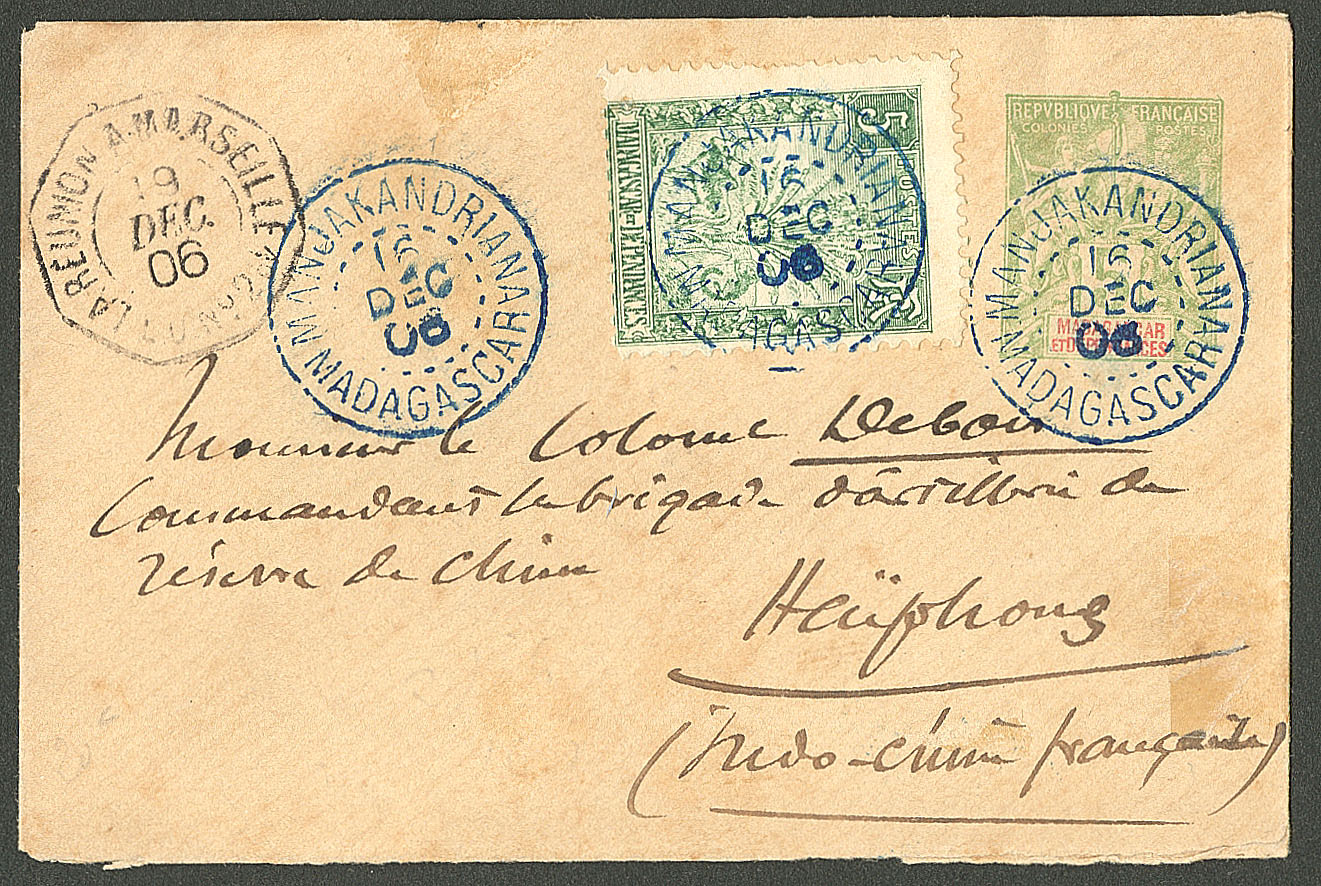 LA RÉUNION A MARSEILLE
L.U. Nº2
19
DEC.
06
MANJAKANDRIANA
16
DEC
06
MADAGASCAR
5
POSTES
MADAGASCAR ET DÉPENDANCES
MANJAKANDRIANA
16
DEC
06
MADAGASCAR
REPVBLIQVE FRANÇAISE
COLONIES POSTES
MADAGASCAR
ET DÉPENDANCES
MANJAKANDRIANA
16
DEC
06
MADAGASCAR
Monsieur le Colonel Debon
Commandant la brigade d'artillerie de
réserve de Chine
Haïphong
(Indo-chine française)